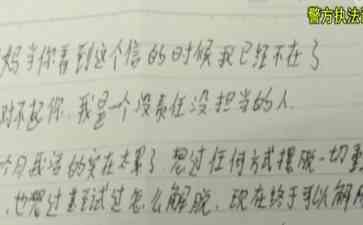 警方执法
妈当你看到这个信的时候我已经不在了
对不起你,我是一个没责任没担当的人.
我活的实在太累了,想过任何方式摆脱一切
,也想过甚至试过怎么解脱,现在终于可以解脱